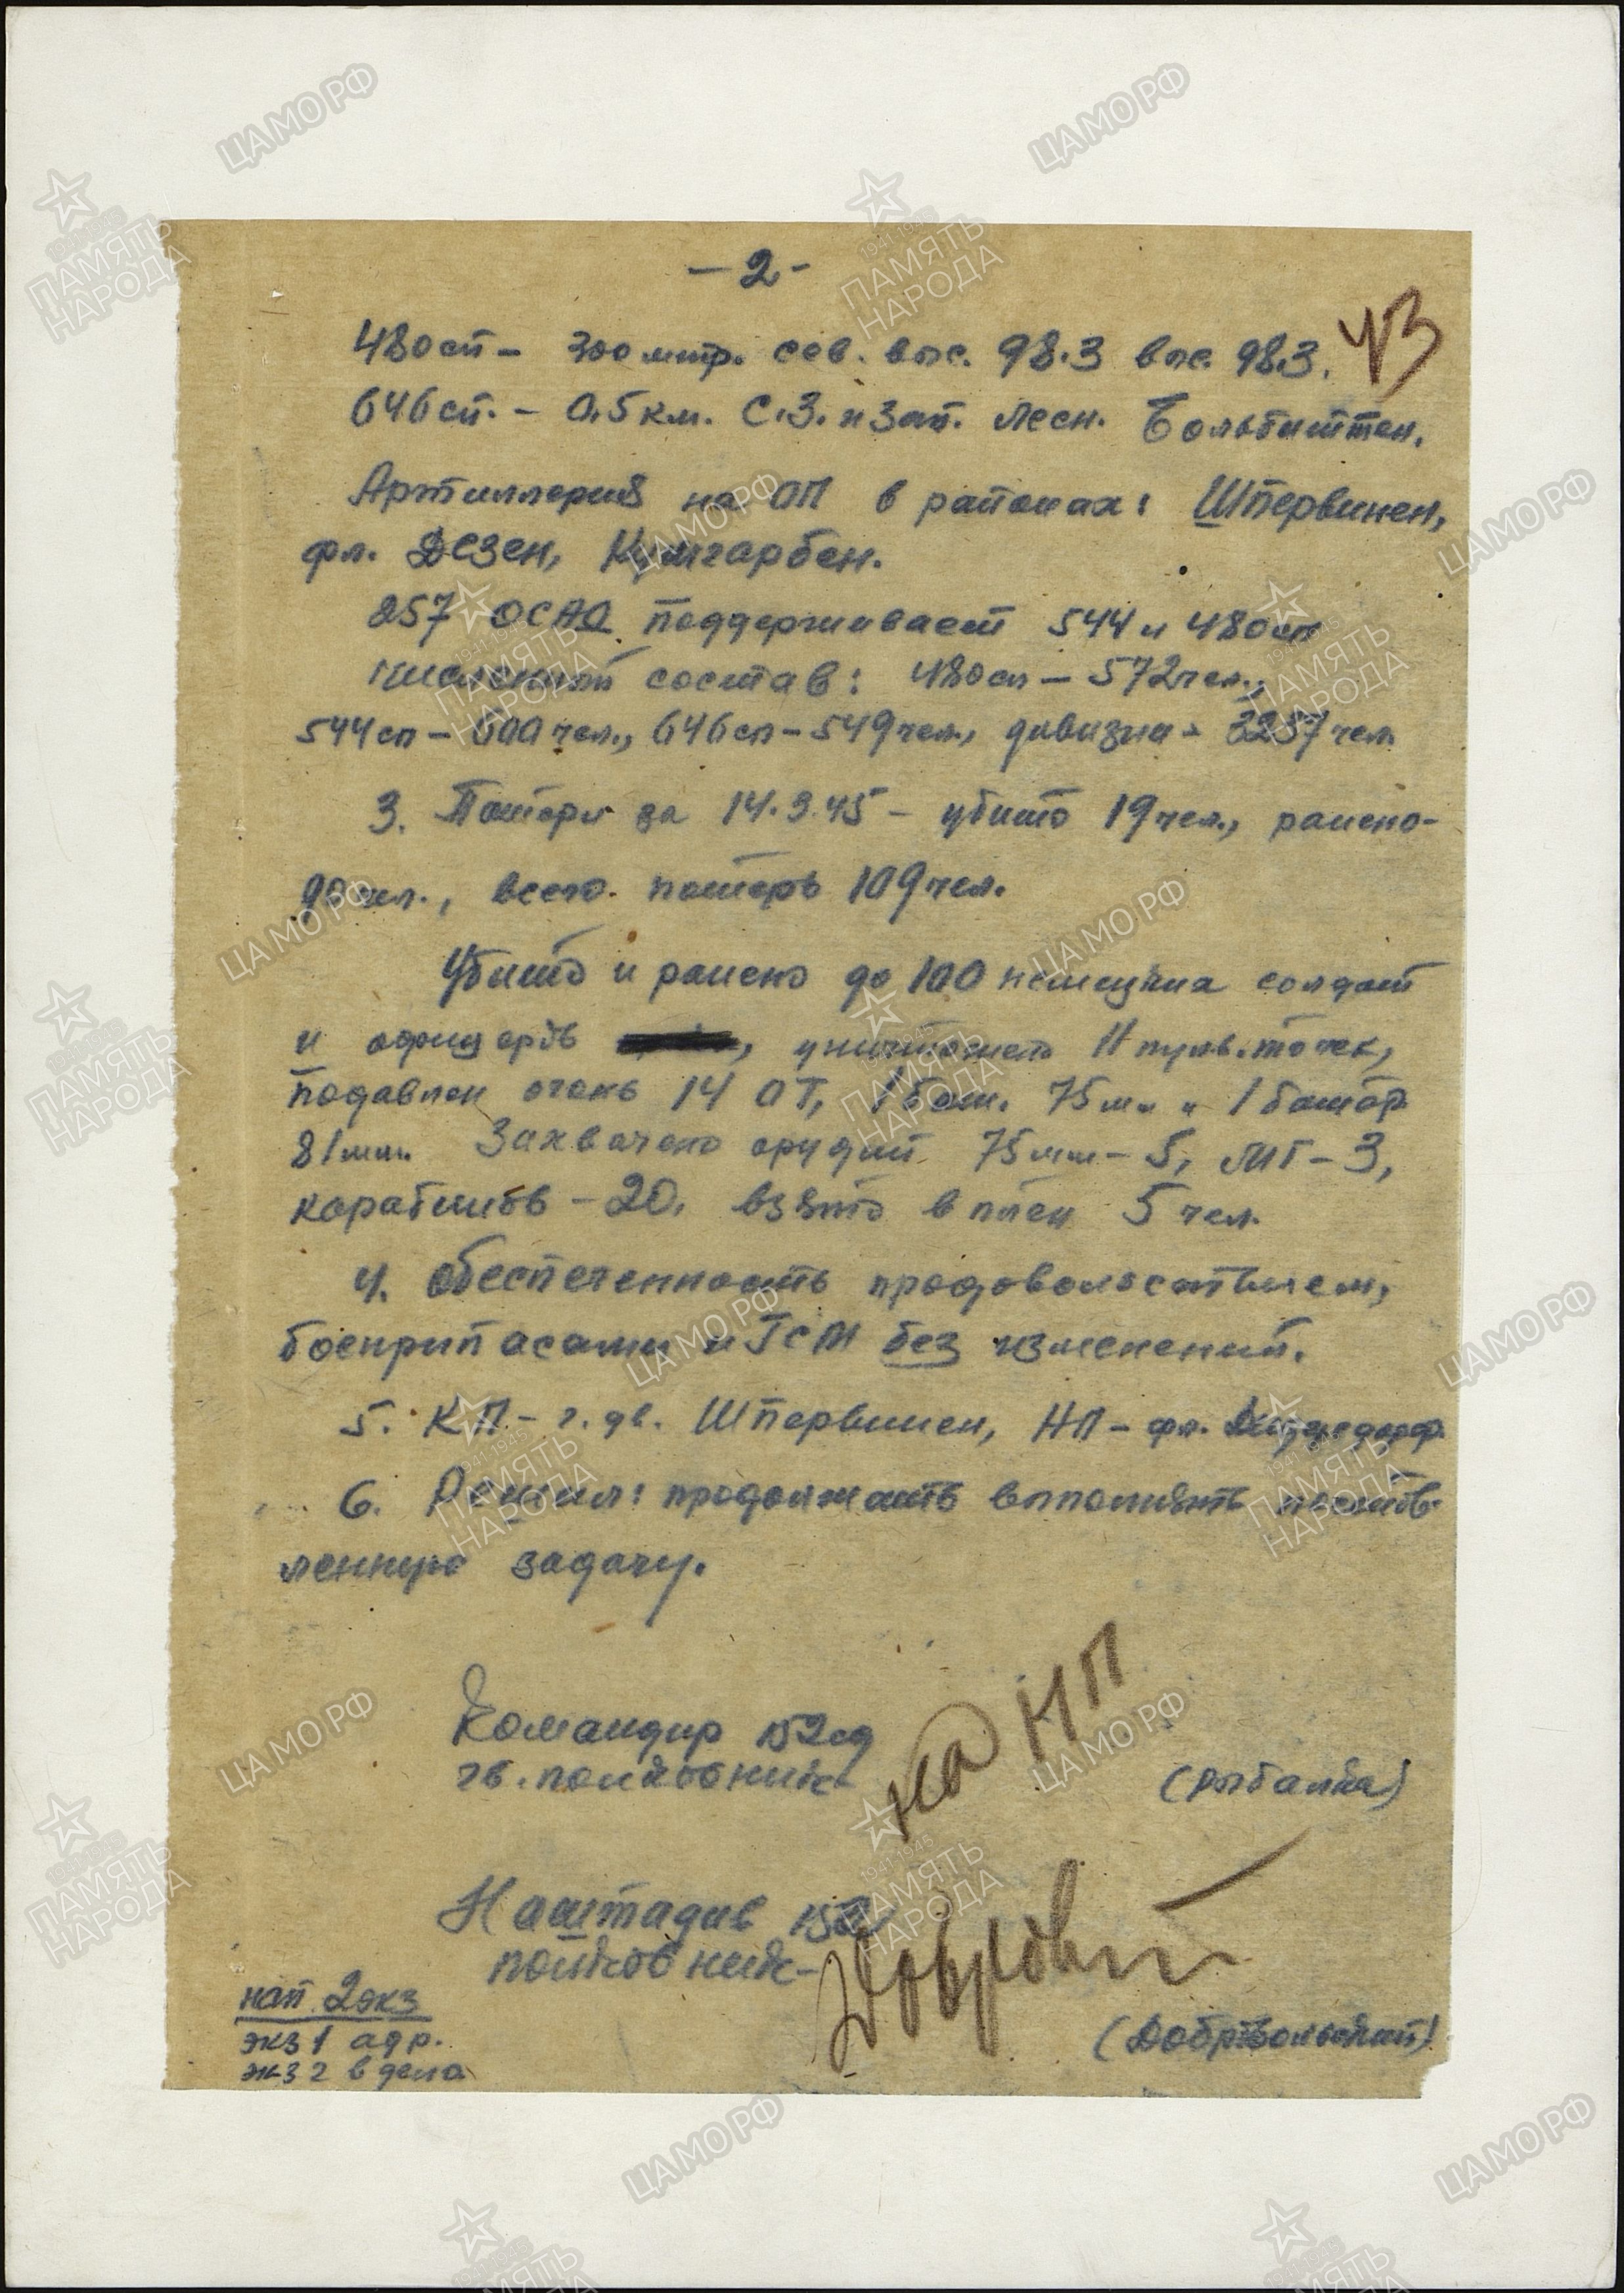 - 2 -
43
480 сп - 300 мтр. сев. выс. 98.3 выс. 98.3.
646 сп. - 0,5 км. С.З. и зап. лесн. Больбиттен.
Артиллерия на ОП в районах: Штервинен,
фл. Дезен, Кумгарбен.
257 ОСАД поддерживает 544 и 480 сп
Численный состав: 480 сп - 572 чел.,
544 сп - 600 чел., 646 сп - 549 чел., дивизии - 3257 чел
3. Потери за 14.3.45 - убито 19 чел., ранено -
90 чел., всего потерь 109 чел.
Убито и ранено до 100 немецких солдат
и офицеров , уничтожено 11 пулв. точек,
подавлен огонь 14 ОТ, 1 бат. 75 мм и 1 батар.
81 мм. Захвачено орудий 75 мм - 5, МГ - 3,
карабинов - 20, взято в плен 5 чел.
4. Обеспеченность продовольствием,
боеприпасами и ГСМ без изменений.
5. КП - г. дв. Штервинен, НП - фл.
6. Решил: продолжать выполнять постав-
ленную задачу.
Командир 152 сд
гв. полковник (Рыбалка)
на НП
Наштадив 152
полковник - (Добровольский)
нап. 2 экз
экз 1 адр.
экз 2 в дела